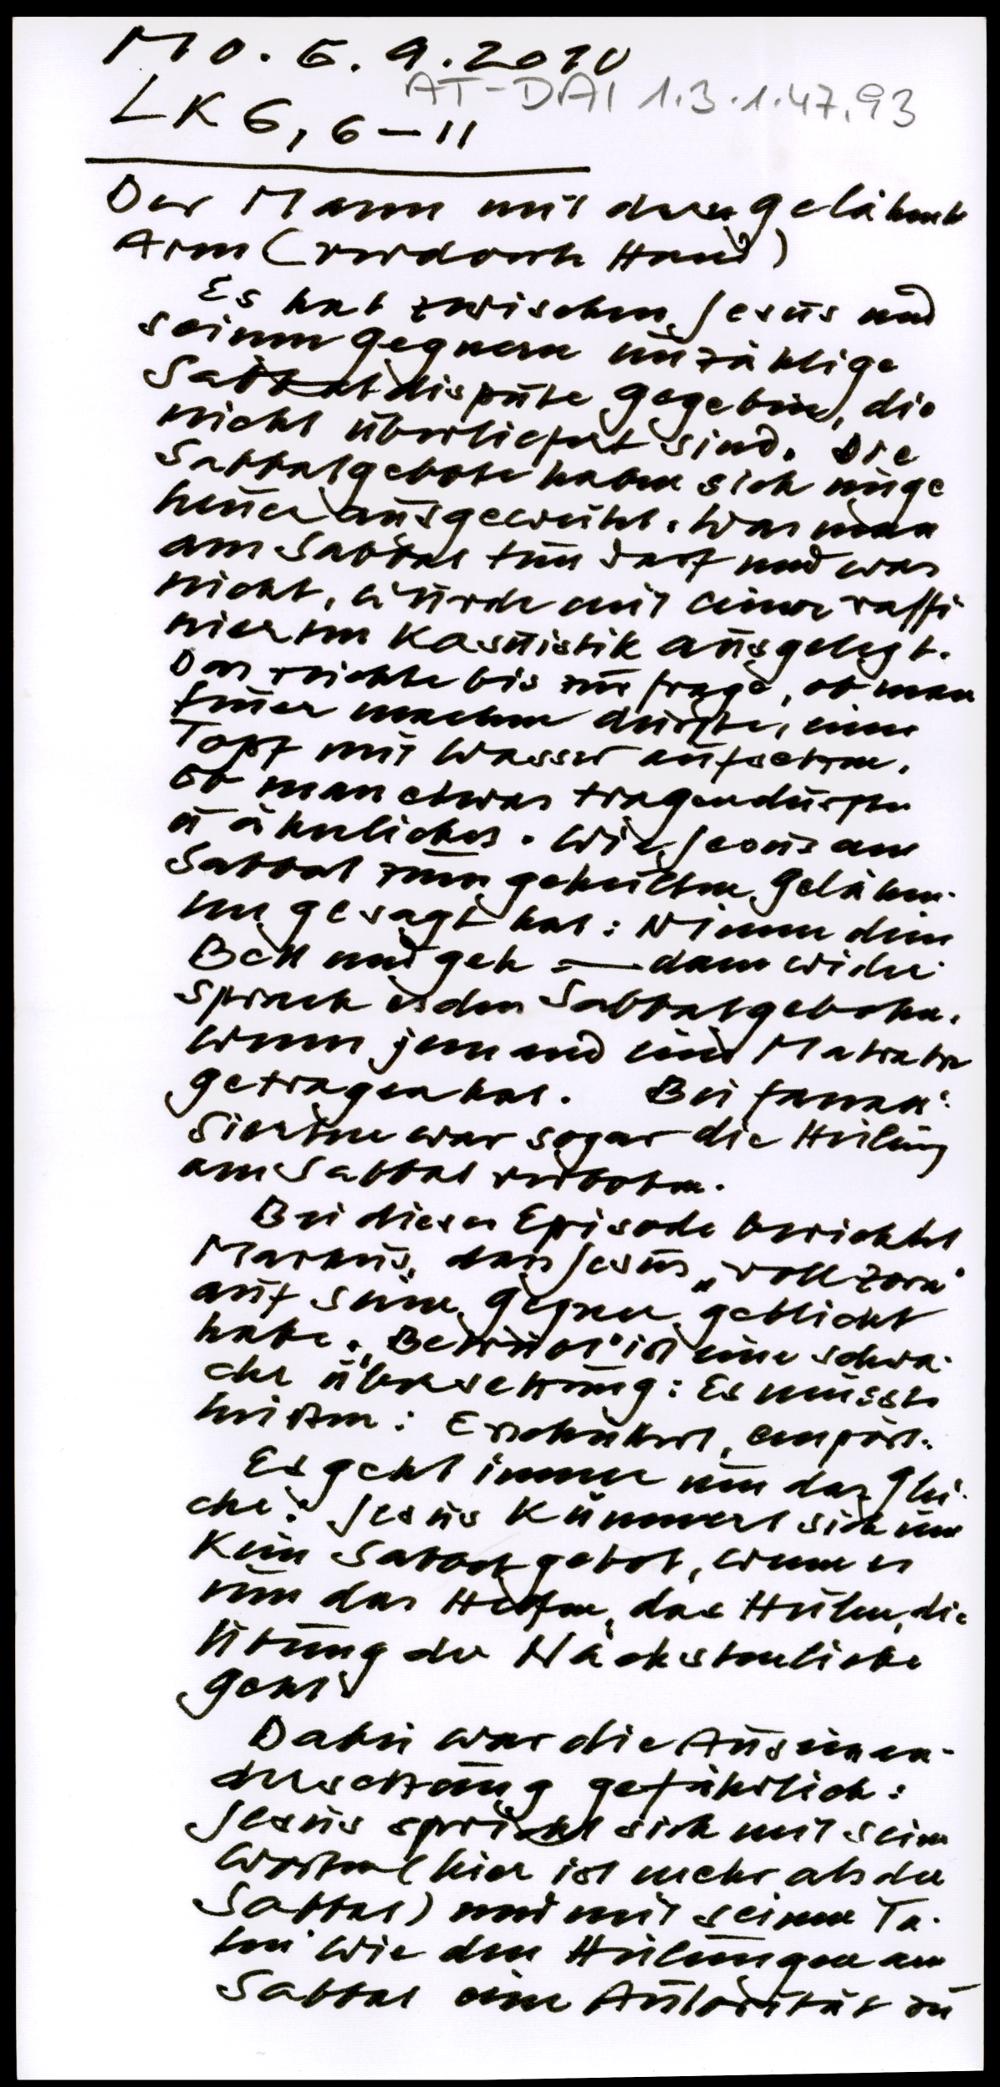 Mo. 6. 9. 2010
AT-DAI 1.3.1.47.93
LK 6, 6-11
Der Mann mit dem gelähmten
Arm (verdorrte Hand)
Es hat zwischen Jesus und
seinen Gegnern unzählige
Sabbatdispute gegeben, die
nicht überliefert sind. Die
Sabbatgebote haben sich unge
heuer ausgeweitet. Was man
am Sabbat tun darf und was
nicht, wurde mit einer raffi
nierten Kasuistik ausgelegt.
Das reichte bis zur Frage, ob man
Feuer machen durfte, einen
Topf mit Wasser aufsetzen.
ob man etwas tragen durfte
u ähnliches. Wie Jesus am
Sabbat zum geheilten Gelähm-
ten gesagt hat: Nimm dein
Bett und geh — dann wider-
sprach es den Sabbatgeboten.
wenn jemand eine Matratze
getragen hat. Bei Pharisäern
war sogar die Heilung
am Sabbat verboten.
Bei dieser Episode berichtet
Markus, dass Jesus "voll Zorn"
auf seine Gegner geblickt
habe. "Betrübt" ist eine schwa-
che Übersetzung: Es müsste
heissen: Erschüttert, empört.
Es geht immer um das glei-
che: Jesus kümmert sich um
kein Sabbatgebot, wenn es
um das Helfen, das Heilen, die
Übung der Nächstenliebe
geht.
Dabei war die Auseinan-
dersetzung gefährlich:
Jesus spricht sich mit seinen
Worten (hier ist mehr als der
Sabbat) und mit seinen Ta-
ten wie den Heilungen am
Sabbat eine Autorität zu